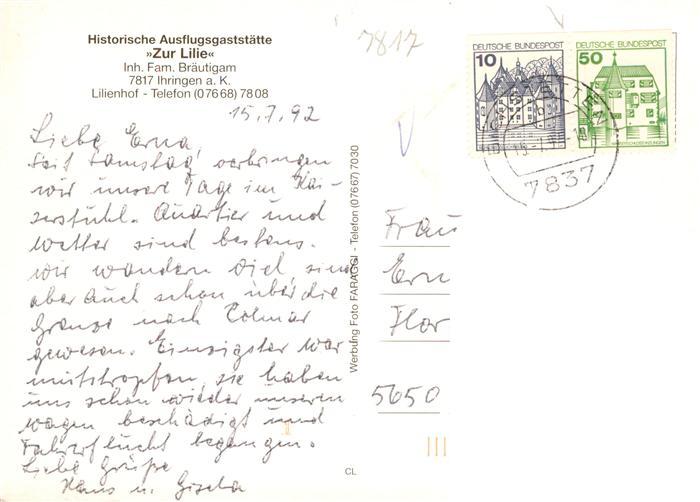 Historische Ausflugsgaststätte
»Zur Lilie«
Inh. Fam. Bräutigam
7817 Ihringen a. K.
Lilienhof - Telefon (07668) 7808
7817
15.7.92
Liebe Erna,
seit Samstag verbringen
wir unsere Tage im Kai-
serstuhl. Quartier und
Wetter sind bestens.
Wir wandern viel, sind
aber auch schon über die
Grenze nach Colmar
gewesen. Einzigster Wer-
mutstropfen, sie haben
uns schon wieder unseren
Wagen beschädigt und
Fahrerflucht begangen.
Liebe Grüße
Hans u. Gisela
Werbung Foto FARAGGI - Telefon (07667) 7030
CL
DEUTSCHE BUNDESPOST
10
DEUTSCHE BUNDESPOST
50
7837
Frau
Ern
Flor
5650